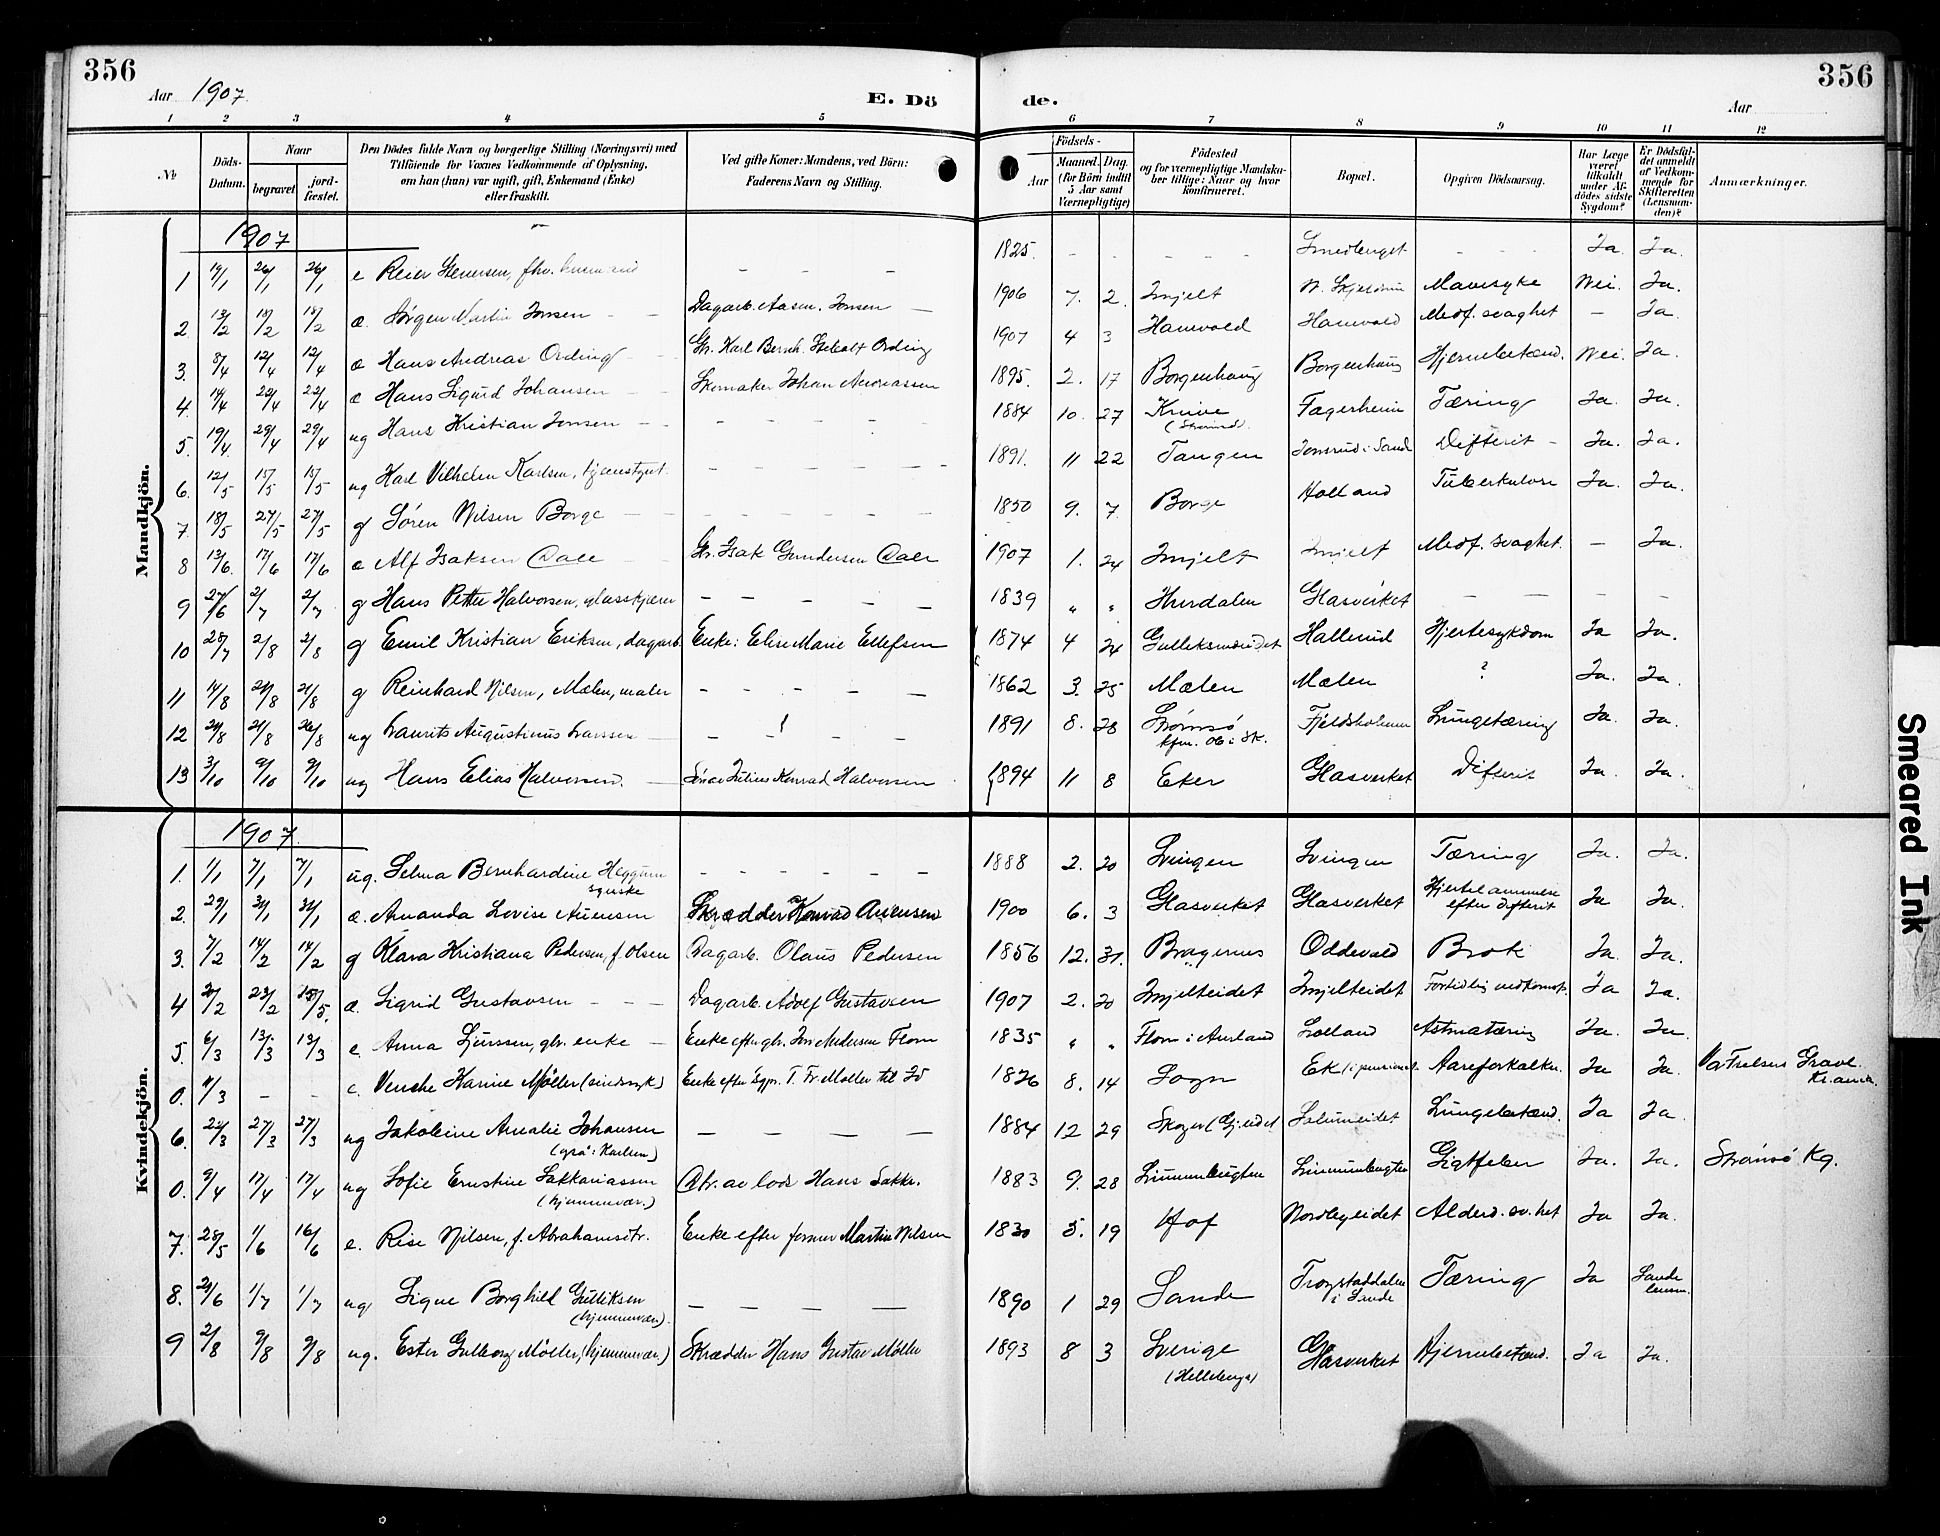 356
Aar 1907
E. Dö
de.
356
Aar
1 2 3 4 5 6 7 8 9 10 11 12
№
Döds-Datum.
Naar
begravet
jordfæstet.
Den Dödes fulde Navn og borgerlige Stilling (Næringsvei) med
Tilföiende for Voxnes Vedkommende af Oplysning,
om han (hun) var ugift, gift, Enkemand (Enke)
eller fraskilt.
Ved gifte Koner: Mandens, ved Börn:
Faderens Navn og Stilling.
Födsels-
Aar
Maaned. Dag.
(for Börn indtil
5 Aar samt
Værnepligtige)
Födested
og for værnepligtige Mandskaber tillige: Naar og hvor
konfirmeret.
Bopæl.
Opgiven Dödsaarsag.
Har Læge
været
tilkaldt
under Afdödes sidste
Sygdom?
Er Dödsfaldet anmeldt
af Vedkommende for
Skifteretten
(Lensmanden)?
Anmærkninger.
Mandkjön.
1907
1 19/1 26/1 26/1 e Reier Stenersen, fhv. husmand – – – 1825. – – – – Smedlenget – – Ja. Ja.
2. 13/2 15/2 15/2 æ. Jörgen Martin Jonsen Dagarb. Aasm. Jonsen 1906 7. 2. Imjelt N. Mavesyke Nei. Ja.
3. 8/4 12/4 12/4 æ Hans Andreas Ording Gbr. Karl Bernh. Ording 1907 4 3 Hanevold Hanevold Medf. svaghet – Ja.
4. 14/4 22/4 22/4 æ Hans Sigurd Johansen Skomaker Johan Andreassen 1895. 2. 17 Borgenhaug Borgenhaug Hjernebetænd. Nei. Ja.
5. 19/4 29/4 29/4 ug Hans Kristian Jonsen – – – 1884 10. 27 Knive Fagerheim Tæring Ja. Ja.
6. 12/5 15/5 15/5 ug Karl Vilhelm Karlsen, tjenestgut. – – – 1891. 11 22 Tangen Jonsrud i Sand Difterit – Ja. Ja.
7. 18/5 27/5 27/5 g Sören Nilsen Borge – – – 1850 9. 7. Borge Holland Tuberkulose Ja. Ja.
8 13/6. 17/6 17/6 æ Alf Isaksen Dale Gbr. Isak Gundersen Dale 1907 1. 24 Imjelt Imjelt Medf. svaghet. – Ja.
9 27/6 2/7 2/7 g Hans Petter Halvorsen, glasskjærer – – – 1839 " " Hurdalen Glasverket – – – –
10 28/7 2/8 2/8 g Emil Kristian Eriksen, dagarb. Enke: Elise Marie Ellefsen 1874 4 24 Hallerud Hjertesykdom Ja Ja.
11 14/8 21/8 21/8 g Reinhard Nilsen, Mælen, maler – – – 1862 3. 25 Mælen Mælen ? Ja. Ja.
12 20/8 26/8 ug Laurits Augustinus Larssen – – – 1891 8. 28 Strömsö Fjeldsholmen Lungetæring Ja. Ja.
kfm. 06 i Sk.
13 3/10 9/10 9/10 ug Hans Elias Halvorsen. Julius Konrad Halvorsen 1894 11 8 Eker Glasverket Difterit Ja. Ja.
Kvindekjön.
1907
1. 1/1 7/1 7/1 ug. Selma Bernhardine Heggum – – – 1888 2. 20 Svingen Svingen Tæring Ja. Ja.
syerske
2. 29/1 31/1 31/1 æ. Amanda Lovise Arnesen Skrædder Konrad Arnesen 1900 6. 3 Glasverket Glasverket Hjertelammelse Ja Ja.
efter difterit
3. 7/2 14/2 14/2 g Klara Kristiana Pedersen, f. Olsen Dagarb. Olaus Pedersen 1856 12. 31. Bragernes Oddevald Brok Ja. Ja.
4 21/2 23/2 15/5. æ. Sigrid Gustavsen – – – Dagarb. Adolf Gustavsen 1907 2. 20 Imjelteidet Imjelteidet Fortidlig nedkomst. Ja Ja.
5. 6/3 13/3 13/3 e. Anna gbr. enke – Enke efter gbr. Jon Andersen Flom 1835 " " Flom i Aurland Lolland Astmatæring Ja. Ja.
0. 11/3 – – e. Venche Karine Möller (sindssyk) Enke efter T. Fr. Möller til 1826 8. 14 Sogn Ek (i pension) Aareforkalkn. Ja Ja. Vor Frelsers Gravl.
Kr.ania.
6. 22/3 27/3 27/3 ug Jakobine Amalie Johansen – – – 1884 12 29 Skoger Lungebetænd. Ja Ja.
0. 9/4 17/4 17/4 ug Sofie Ernstine Sakkariassen Dtr. av lods Hans Sakkr. 1883 9. 28 Gigtfeber Ja. Ja. Strömsö Kg.
(hjemmevær.)
7. 28/5 1/6 16/6 e. Rise Nilsen, f. Abrahamsdtr. Enke efter former Martin Nilsen 1830 5. 19 Hof Alderd. sv.het Ja Ja.
8. 20/6 1/7 1/7 ug Signe Borghild Gulliksen – – – 1890 1 29 Sande Trogstaddalen Tæring Ja Sande
(hjemmevær.) i Sande lensm.
9 2/8 9/8 9/8 ug. Ester Gulborg Möller, (hjemmevær.) Skrædder Hans Gustav Möller 1893 8 3 Sverige Glasverket Hjernebetænd. Ja Ja.
Smeared Ink